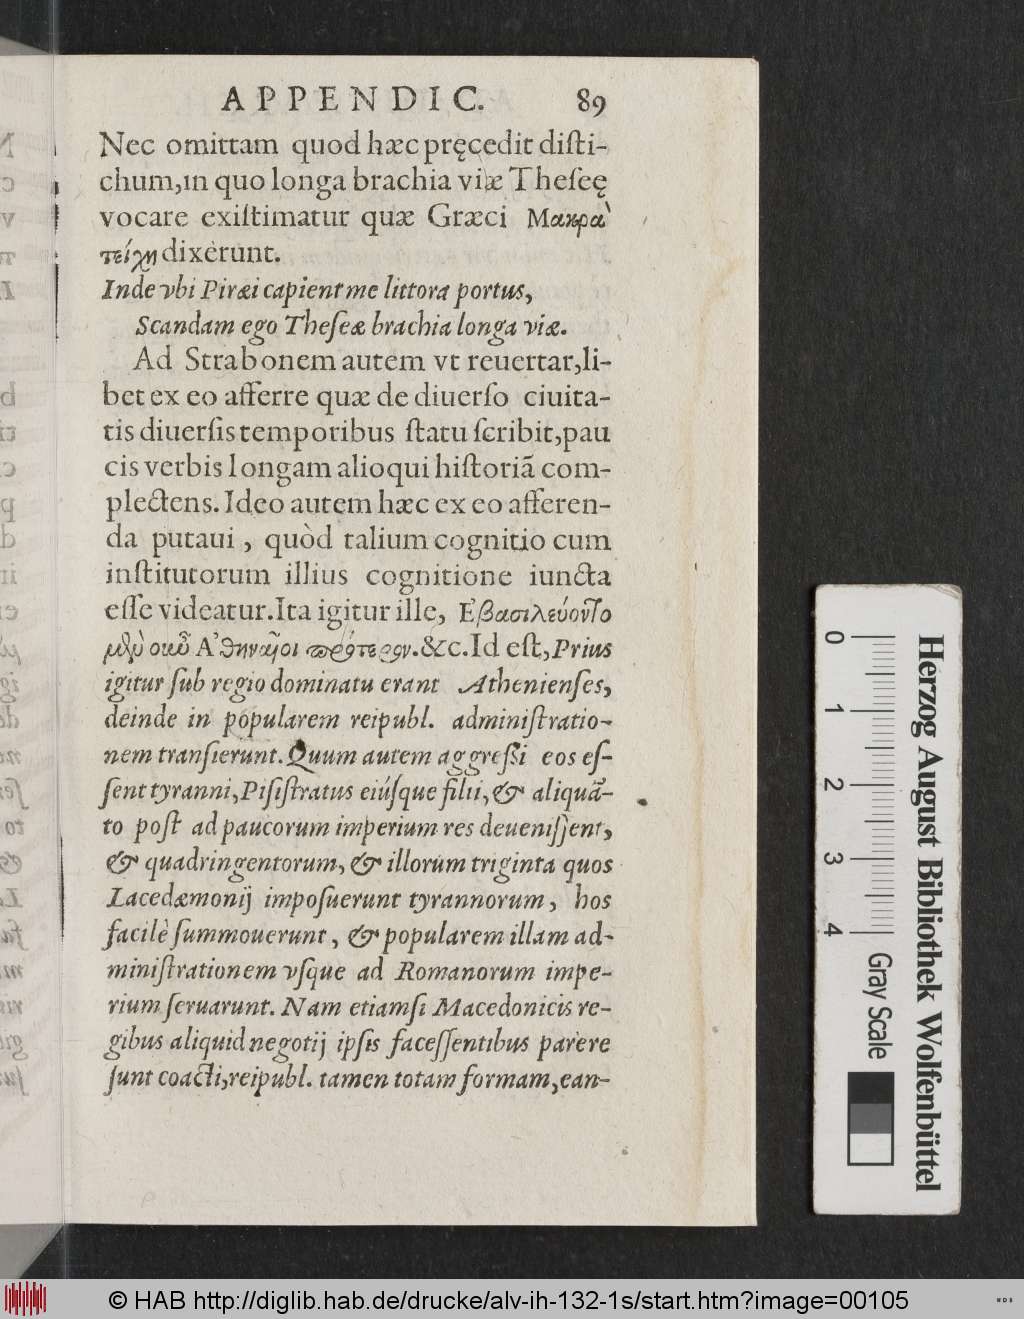 APPENDIC. 89
Nec omittam quod hæc pręcedit disti-
chum,in quo longa brachia viæ Theseę
vocare existimatur quæ Græci Μακρὰ
τείχη dixerunt.
Inde vbi Piræi capient me littora portus,
Scandam ego Theseæ brachia longa viæ.
Ad Strabonem autem vt reuertar,li-
bet ex eo afferre quæ de diuerso ciuita-
tis diuersis temporibus statu scribit,pau
cis verbis longam alioqui historiã com-
plectens. Ideo autem hæc ex eo afferen-
da putaui, quòd talium cognitio cum
institutorum illius cognitione iuncta
esse videatur. Ita igitur ille, Ἐβασιλεύοντο
μὲν οὖν Ἀθηναῖοι πρότερον. &c. Id est, Prius
igitur sub regio dominatu erant Athenienses,
deinde in popularem reipubl. administratio-
nem transierunt. Quum autem aggressi eos es-
sent tyranni, Pisistratus eiúsque filii, & aliquã-
to post ad paucorum imperium res deuenissent,
& quadringentorum, & illorum triginta quos
Lacedæmonij imposuerunt tyrannorum, hos
facilè summouerunt, & popularem illam ad-
ministrationem vsque ad Romanorum impe-
rium seruarunt. Nam etiamsi Macedonicis re-
gibus aliquid negotij ipsis facessentibus parere
sunt coacti,reipubl. tamen totam formam,ean-
0 1 2 3 4
Gray Scale
Herzog August Bibliothek Wolfenbüttel
© HAB http://diglib.hab.de/drucke/alv-ih-132-1s/start.htm?image=00105